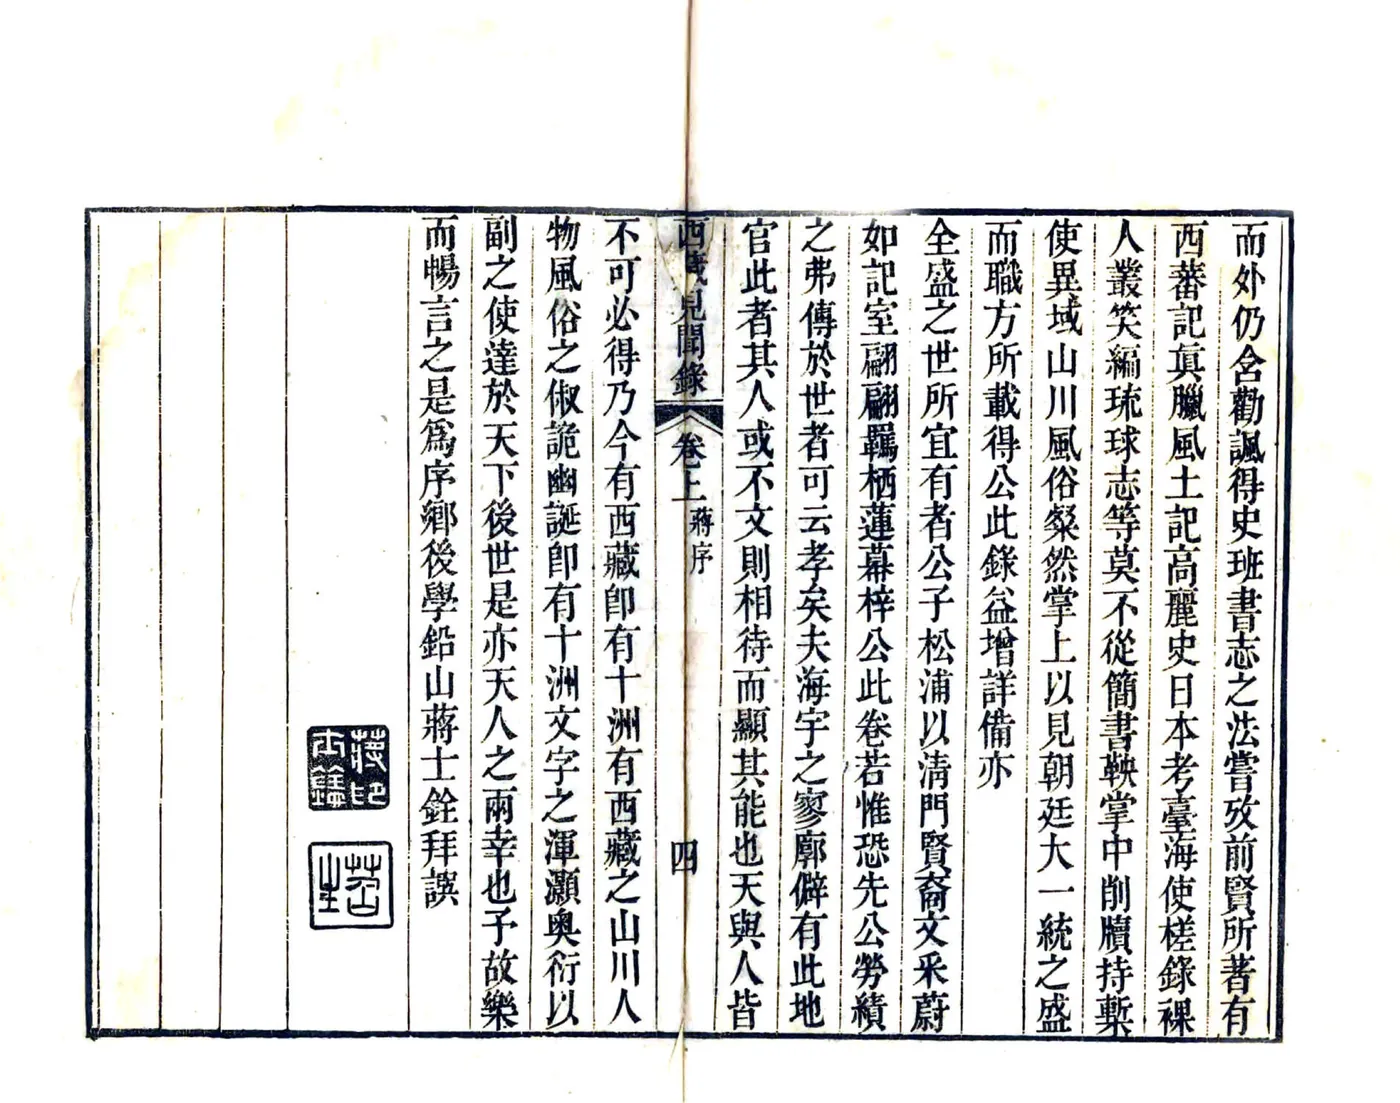 而外仍含勸諷得史班書志之法嘗攷前賢所著有
西蕃記眞臘風土記高麗史日本考臺海使槎錄裸
人叢笑編琉球志等莫不從簡書鞅掌中削牘持槧
使異域山川風俗粲然掌上以見朝廷大一統之盛
而職方所載得公此錄益增詳備亦
全盛之世所宜有者公子松浦以清門賢裔文采蔚
如記室翩翩羈栖蓮幕梓公此卷若惟恐先公勞績
之弗傳於世者可云孝矣夫海宇之寥廓僻有此地
官此者其人或不文則相待而顯其能也天與人皆
西藏見聞錄 卷上 蔣序 四
不可必得乃今有西藏卽有十洲有西藏之山川人
物風俗之俶詭幽誕卽有十洲文字之渾灝奧衍以
副之使達於天下後世是亦天人之兩幸也予故樂
而暢言之是爲序鄉後學鉛山蔣士銓拜譔
蔣士銓印
苕生